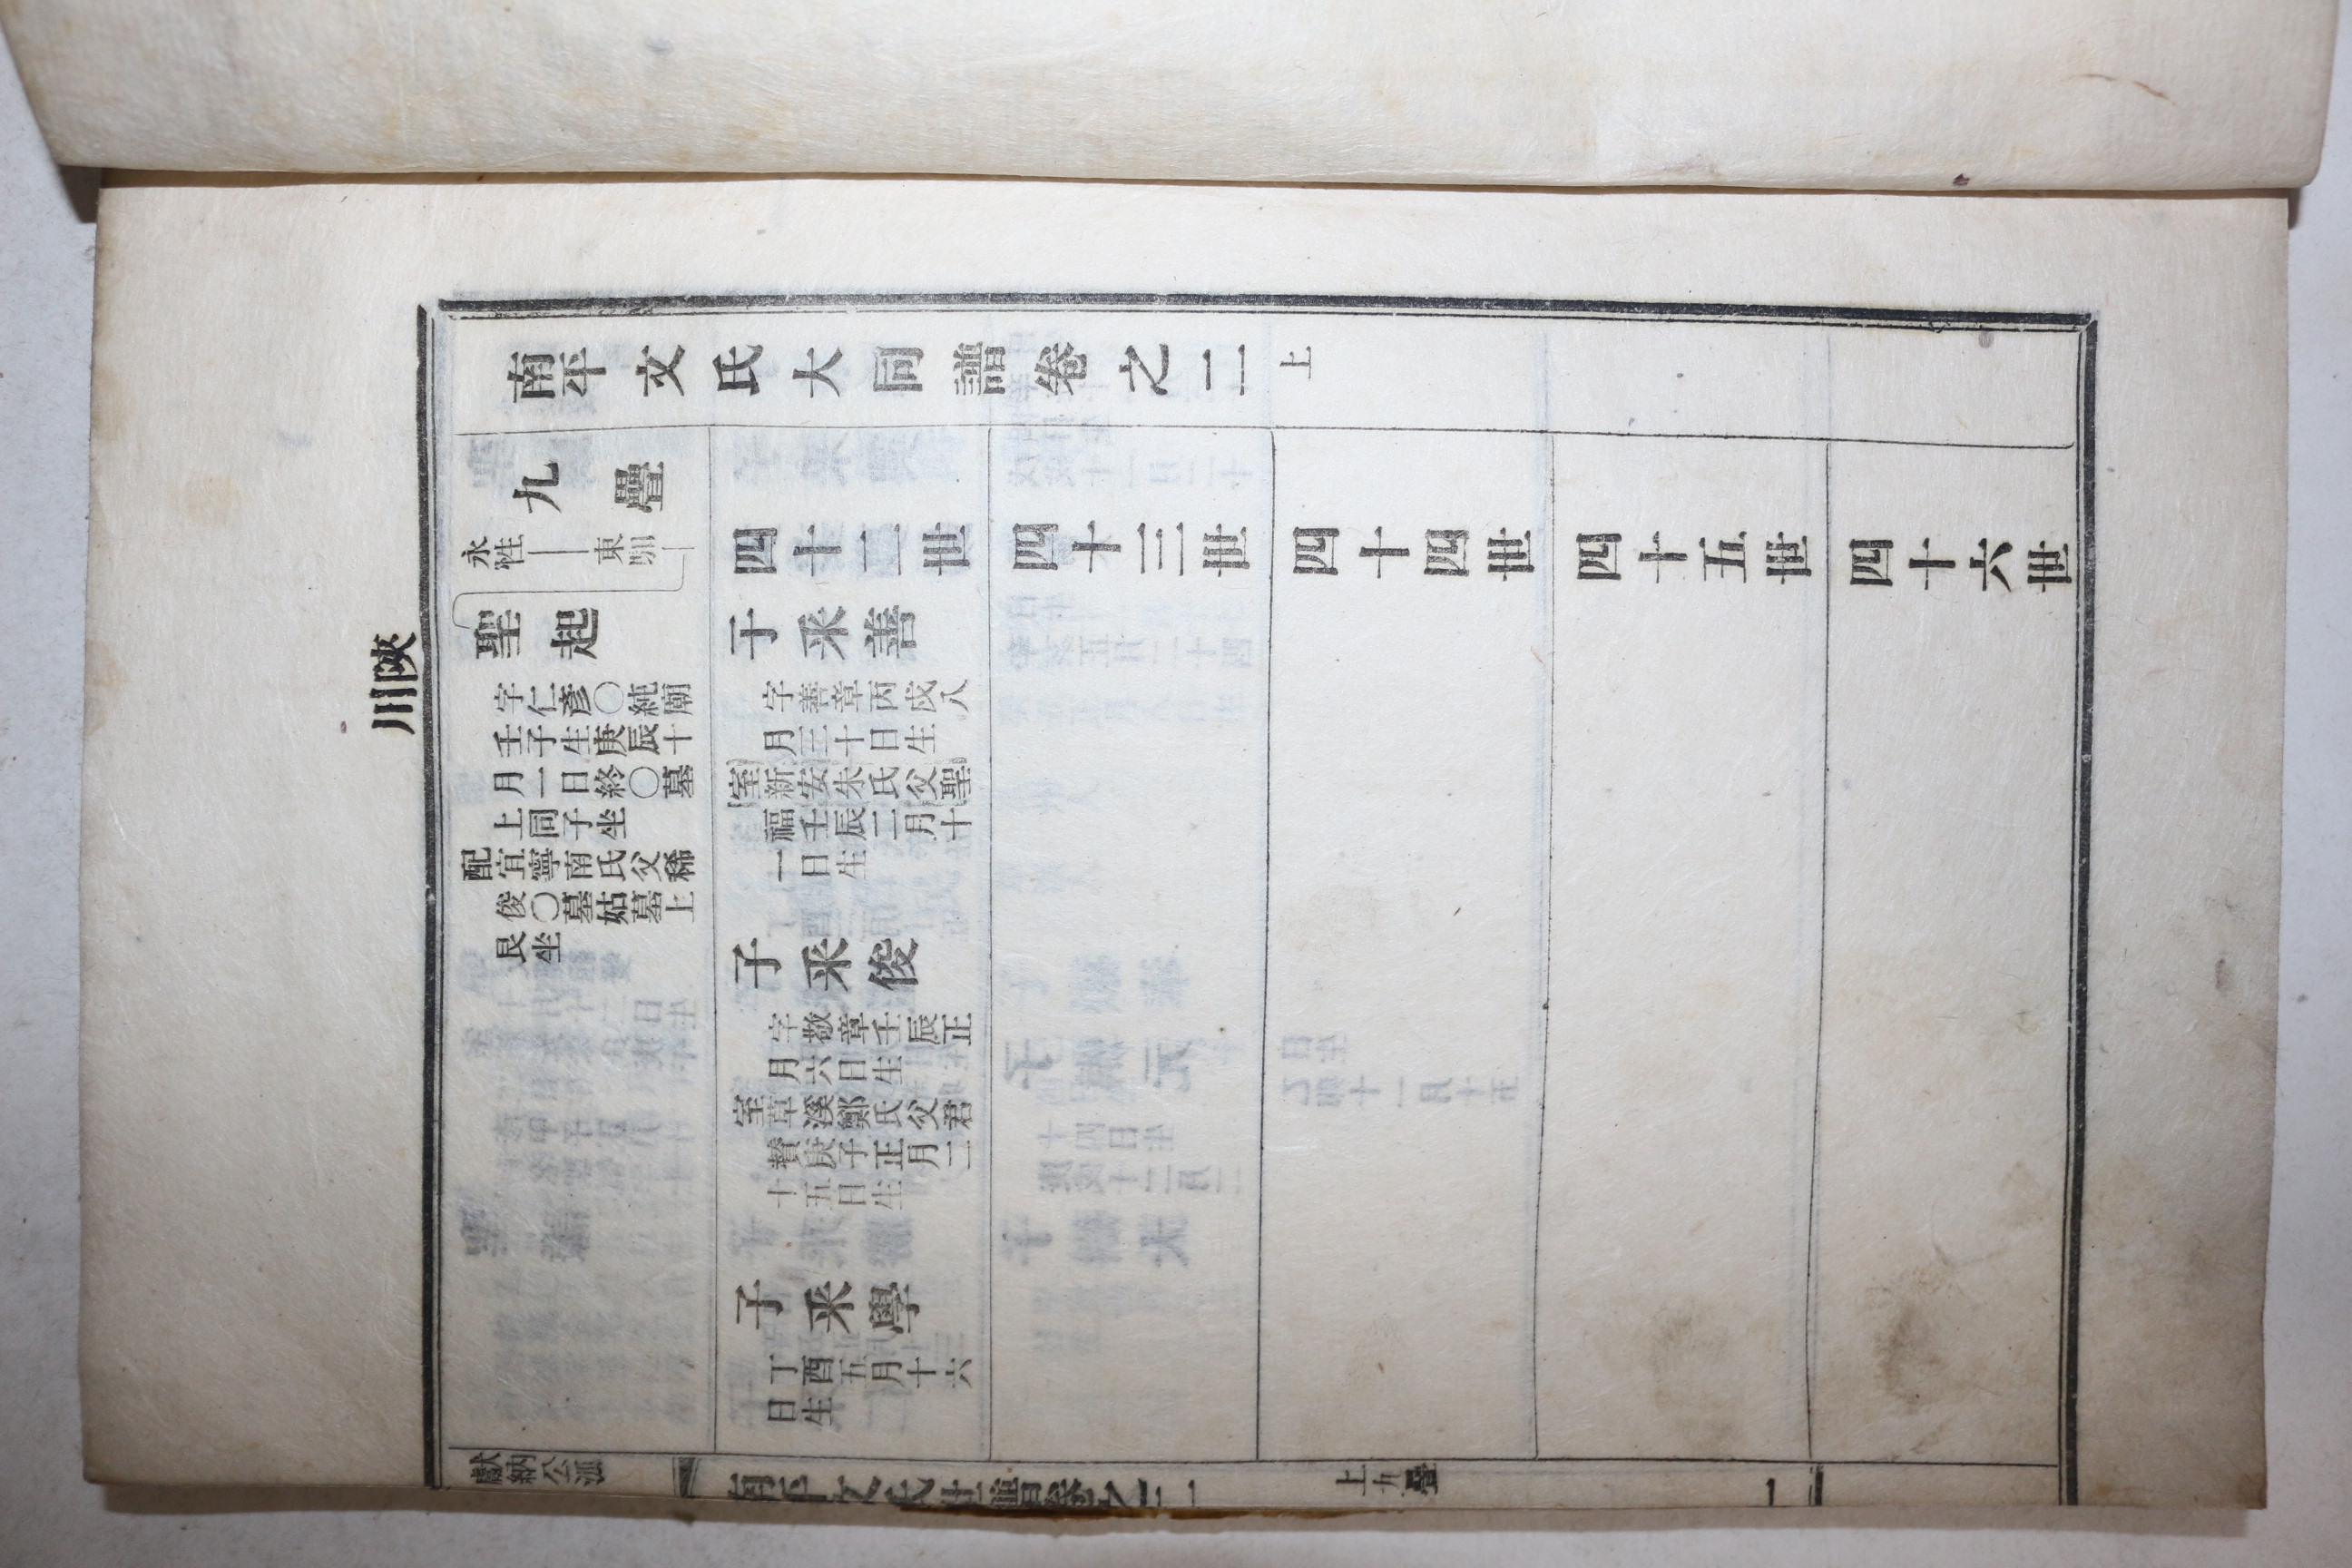 陜川
南平文氏大同譜卷之二 上
九疊
永性——東
聖起
字仁彥〇純廟
壬子生庚辰十
月一日終〇墓
上同子坐
配宜寧南氏父稀
俊〇墓姑墓上
艮坐
四十二世
子釆善
字善章丙戌八
月三十日生
室新安朱氏父聖
福壬辰二月十
一日生
子釆俊
字敬章壬辰正
月六日生
室草溪鄭氏父君
贊庚子正月二
十五日生
子釆學
丁酉五月十六
日生
四十三世
四十四世
四十五世
四十六世
獻納公派
南平文氏世譜卷之二
上九疊
一